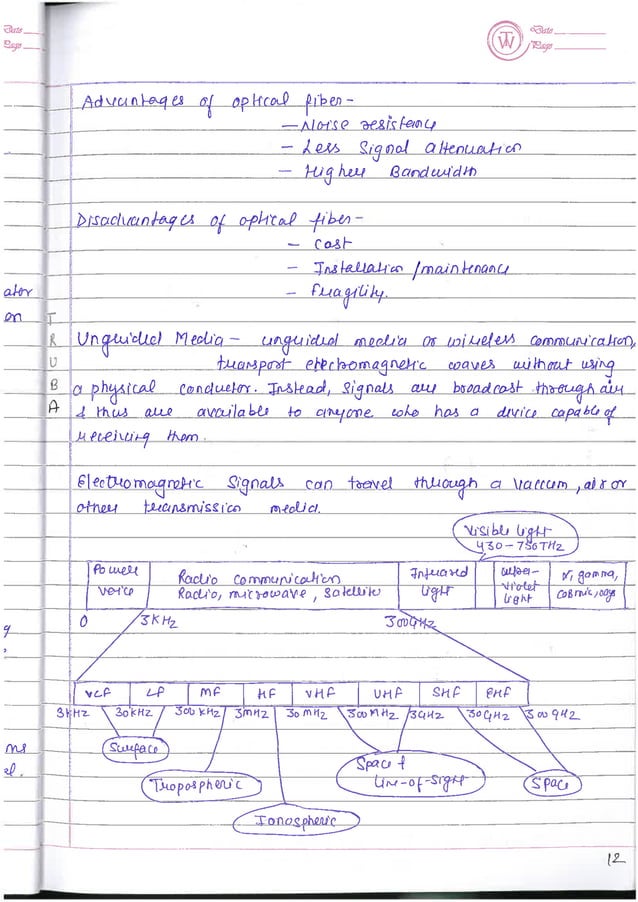 Date
Page
TW
Date
Page
Advantages of optical fiber-
- Noise resistence
- Less Signal attenuation
- Higher Bandwidth
Disadvantages of optical fiber-
- Cost
- Installation/maintenance
- fragility.
ator
on
TRUBA
Unguided Media - unguided media or wireless communication,
transport electromagnetic waves without using
a physical conductor. Instead, signals are broadcast through air
& thus are available to anyone who has a device capable of
receiving them.
Electromagnetic Signals can travel through a vaccum, air or
other transmission media.
Visible light
430-750THz
Power
voice
Radio communication
Radio, microwave, satellite
Infrared
light
ultra-
violet
light
X, gamma,
cosmic, rays
0
3KHz
300GHz
VLF
LF
MF
HF
VHF
UHF
SHF
EHF
3KHz
30KHz
300KHz
3MHz
30MHz
300MHz
3GHz
30GHz
300GHz
Surface
Tropospheric
Ionospheric
Space &
Line-of-Sight
Space
g
ns
el.
12